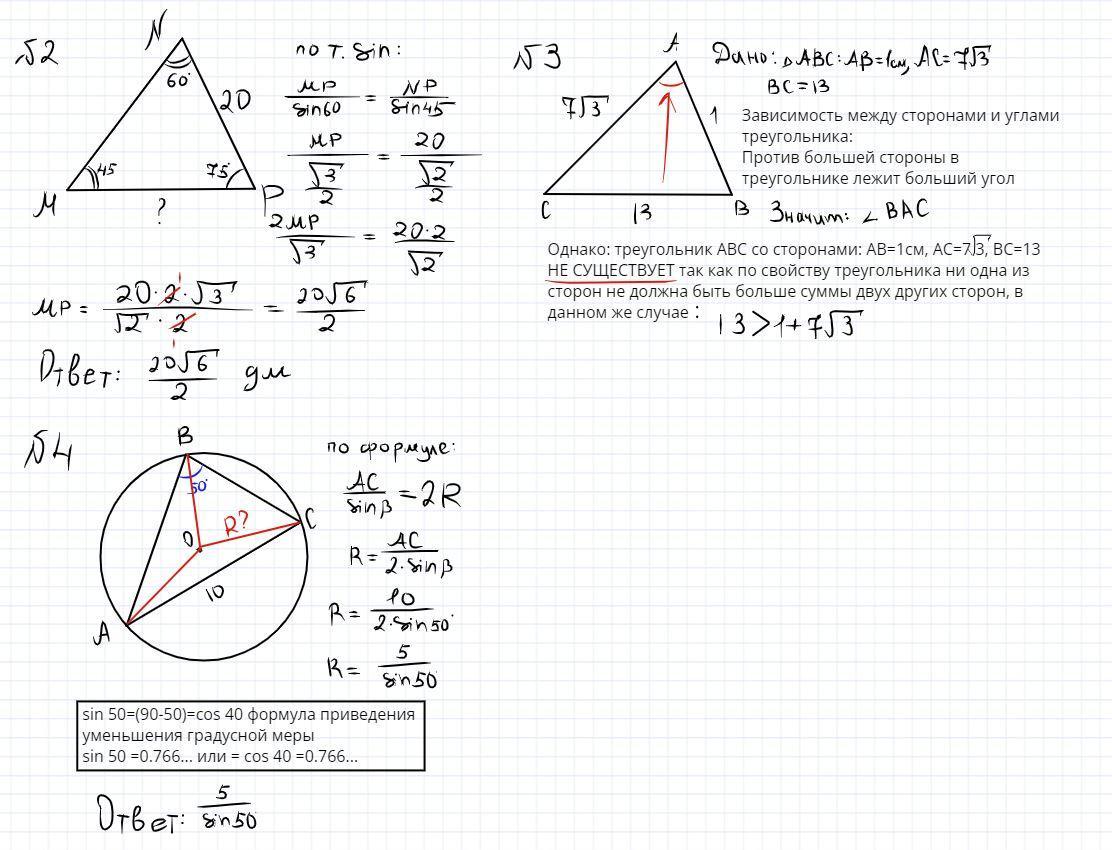 №2
N
60°
20
45
75°
M
P
?
по т. sin:
MP/sin60 = NP/sin45
MP/(√3/2) = 20/(√2/2)
2MP/√3 = 20·2/√2
MP = 20·2·√3/√2·2 = 20√6/2
1
1
Ответ: 20√6/2 дм
№3
A
7√3
1
C
13
B
Дано: △ABC: AB=1см, AC=7√3
BC=13
Зависимость между сторонами и углами
треугольника:
Против большей стороны в
треугольнике лежит больший угол
Значит: ∠BAC
Однако: треугольник ABC со сторонами: AB=1см, AC=7√3, BC=13
НЕ СУЩЕСТВУЕТ так как по свойству треугольника ни одна из
сторон не должна быть больше суммы двух других сторон, в
данном же случае :
13>1+7√3
№4
B
50°
O
R?
C
10
A
по формуле:
AC/sinβ = 2R
R = AC/2·sinβ
R = 10/2·sin50°
R = 5/sin50°
sin 50=(90-50)=cos 40 формула приведения
уменьшения градусной меры
sin 50 =0.766... или = cos 40 =0.766...
Ответ: 5/sin50°